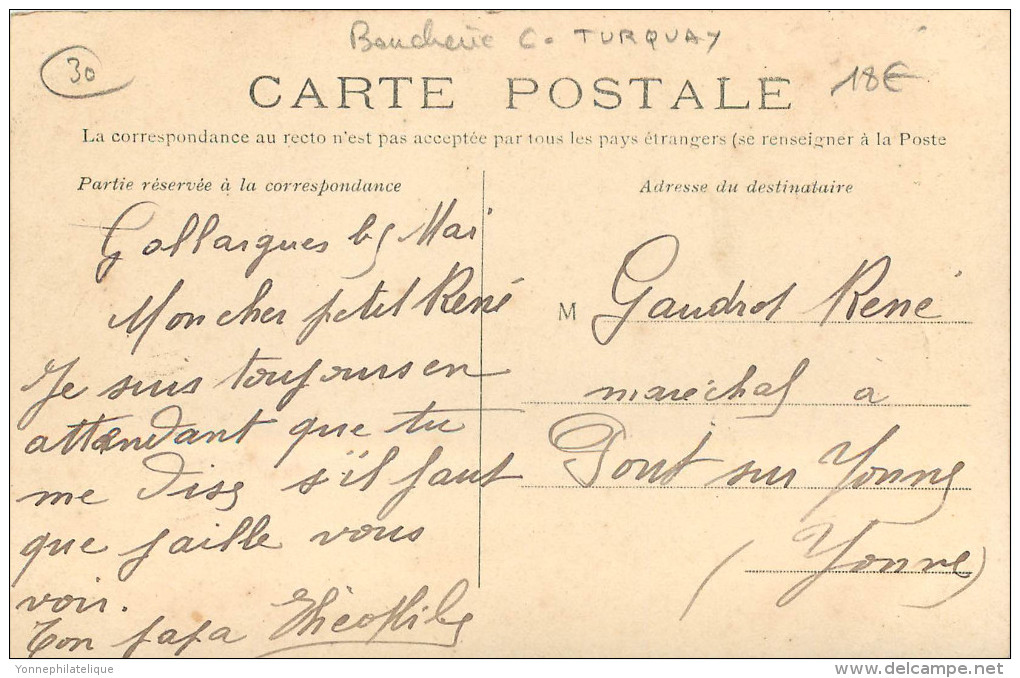 Boucherie C. TURQUAY
30
18€
CARTE POSTALE
La correspondance au recto n'est pas acceptée par tous les pays étrangers (se renseigner à la Poste
Partie réservée à la correspondance
Adresse du destinataire
Gallargues le Mai
Mon cher petit René
Je suis toujours en
attendant que tu
me dise s'il faut
que jaille vous
voir.
Ton papa Théophile
M Gaudrot René
maréchal a
Pont sur Yonne
(Yonne)
Yonnephilatelique
www.delcampe.net